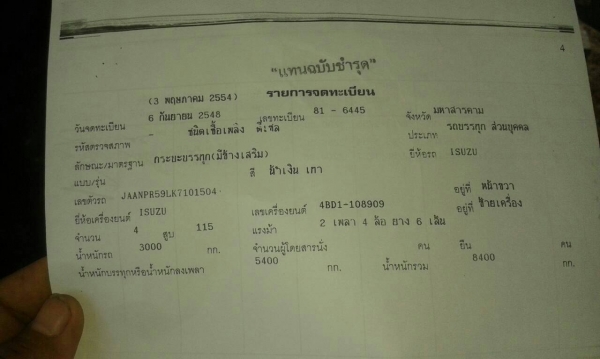 4
"แทนฉบับชำรุด"
(3 พฤษภาคม 2554) รายการจดทะเบียน
วันจดทะเบียน 6 กันยายน 2548 เลขทะเบียน 81 - 6445 จังหวัด มหาสารคาม
รหัสตรวจสภาพ - ชนิดเชื้อเพลิง ดีเซล ประเภท รถบรรทุก ส่วนบุคคล
ลักษณะ/มาตรฐาน กระบะบรรทุก(มีข้างเสริม) ยี่ห้อรถ ISUZU
แบบ/รุ่น สี เงิน เทา
เลขตัวรถ JAANPR59LK7101504 อยู่ที่ หน้าขวา
ยี่ห้อเครื่องยนต์ ISUZU เลขเครื่องยนต์ 4BD1-108909 อยู่ที่ ซ้ายเครื่อง
จำนวน 4 สูบ 115 แรงม้า 2 เพลา 4 ล้อ ยาง 6 เส้น
น้ำหนักรถ 3000 กก. จำนวนผู้โดยสารนั่ง คน ยืน คน
น้ำหนักบรรทุกหรือน้ำหนักลงเพลา 5400 กก. น้ำหนักรวม 8400 กก.